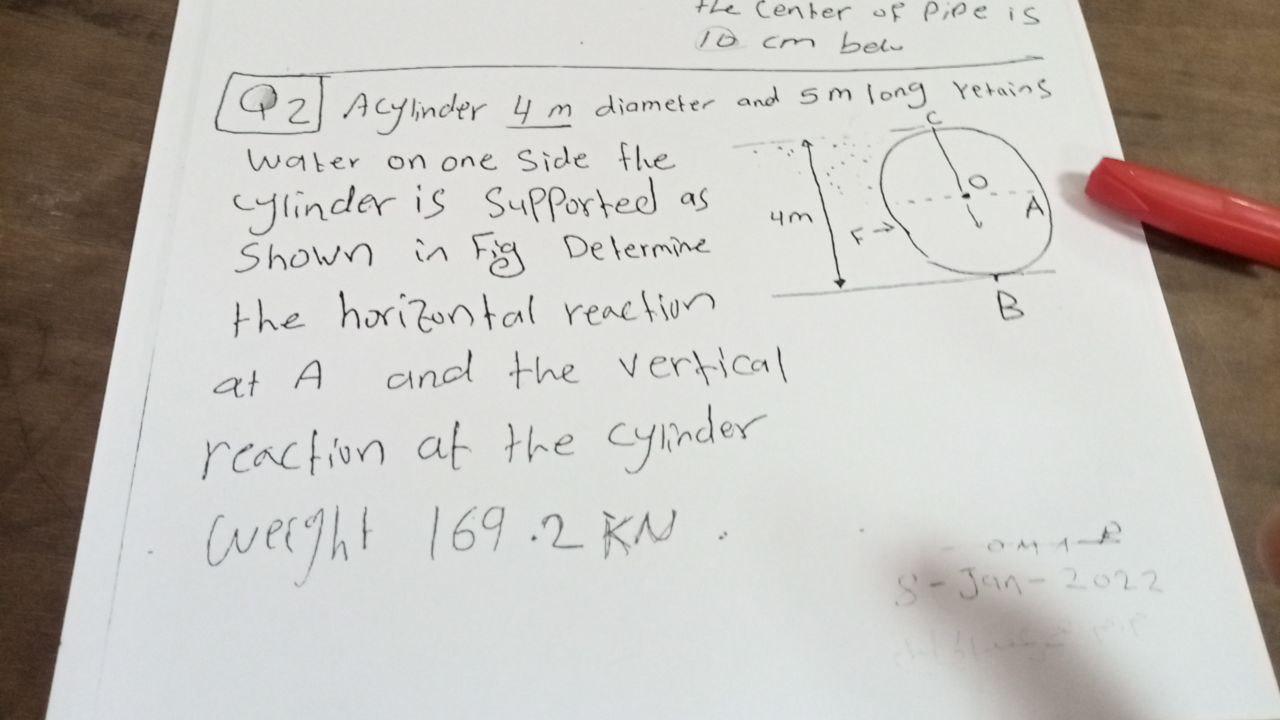 the center of pipe is
10 cm belo
Q2 A cylinder 4 m diameter and 5m long retains
water on one side the
cylinder is supported as
shown in Fig Determine
the horizontal reaction
at A and the vertical
reaction at the cylinder
weight 169.2 KN .
C
O
A
4m
F
B
8-Jan-2022